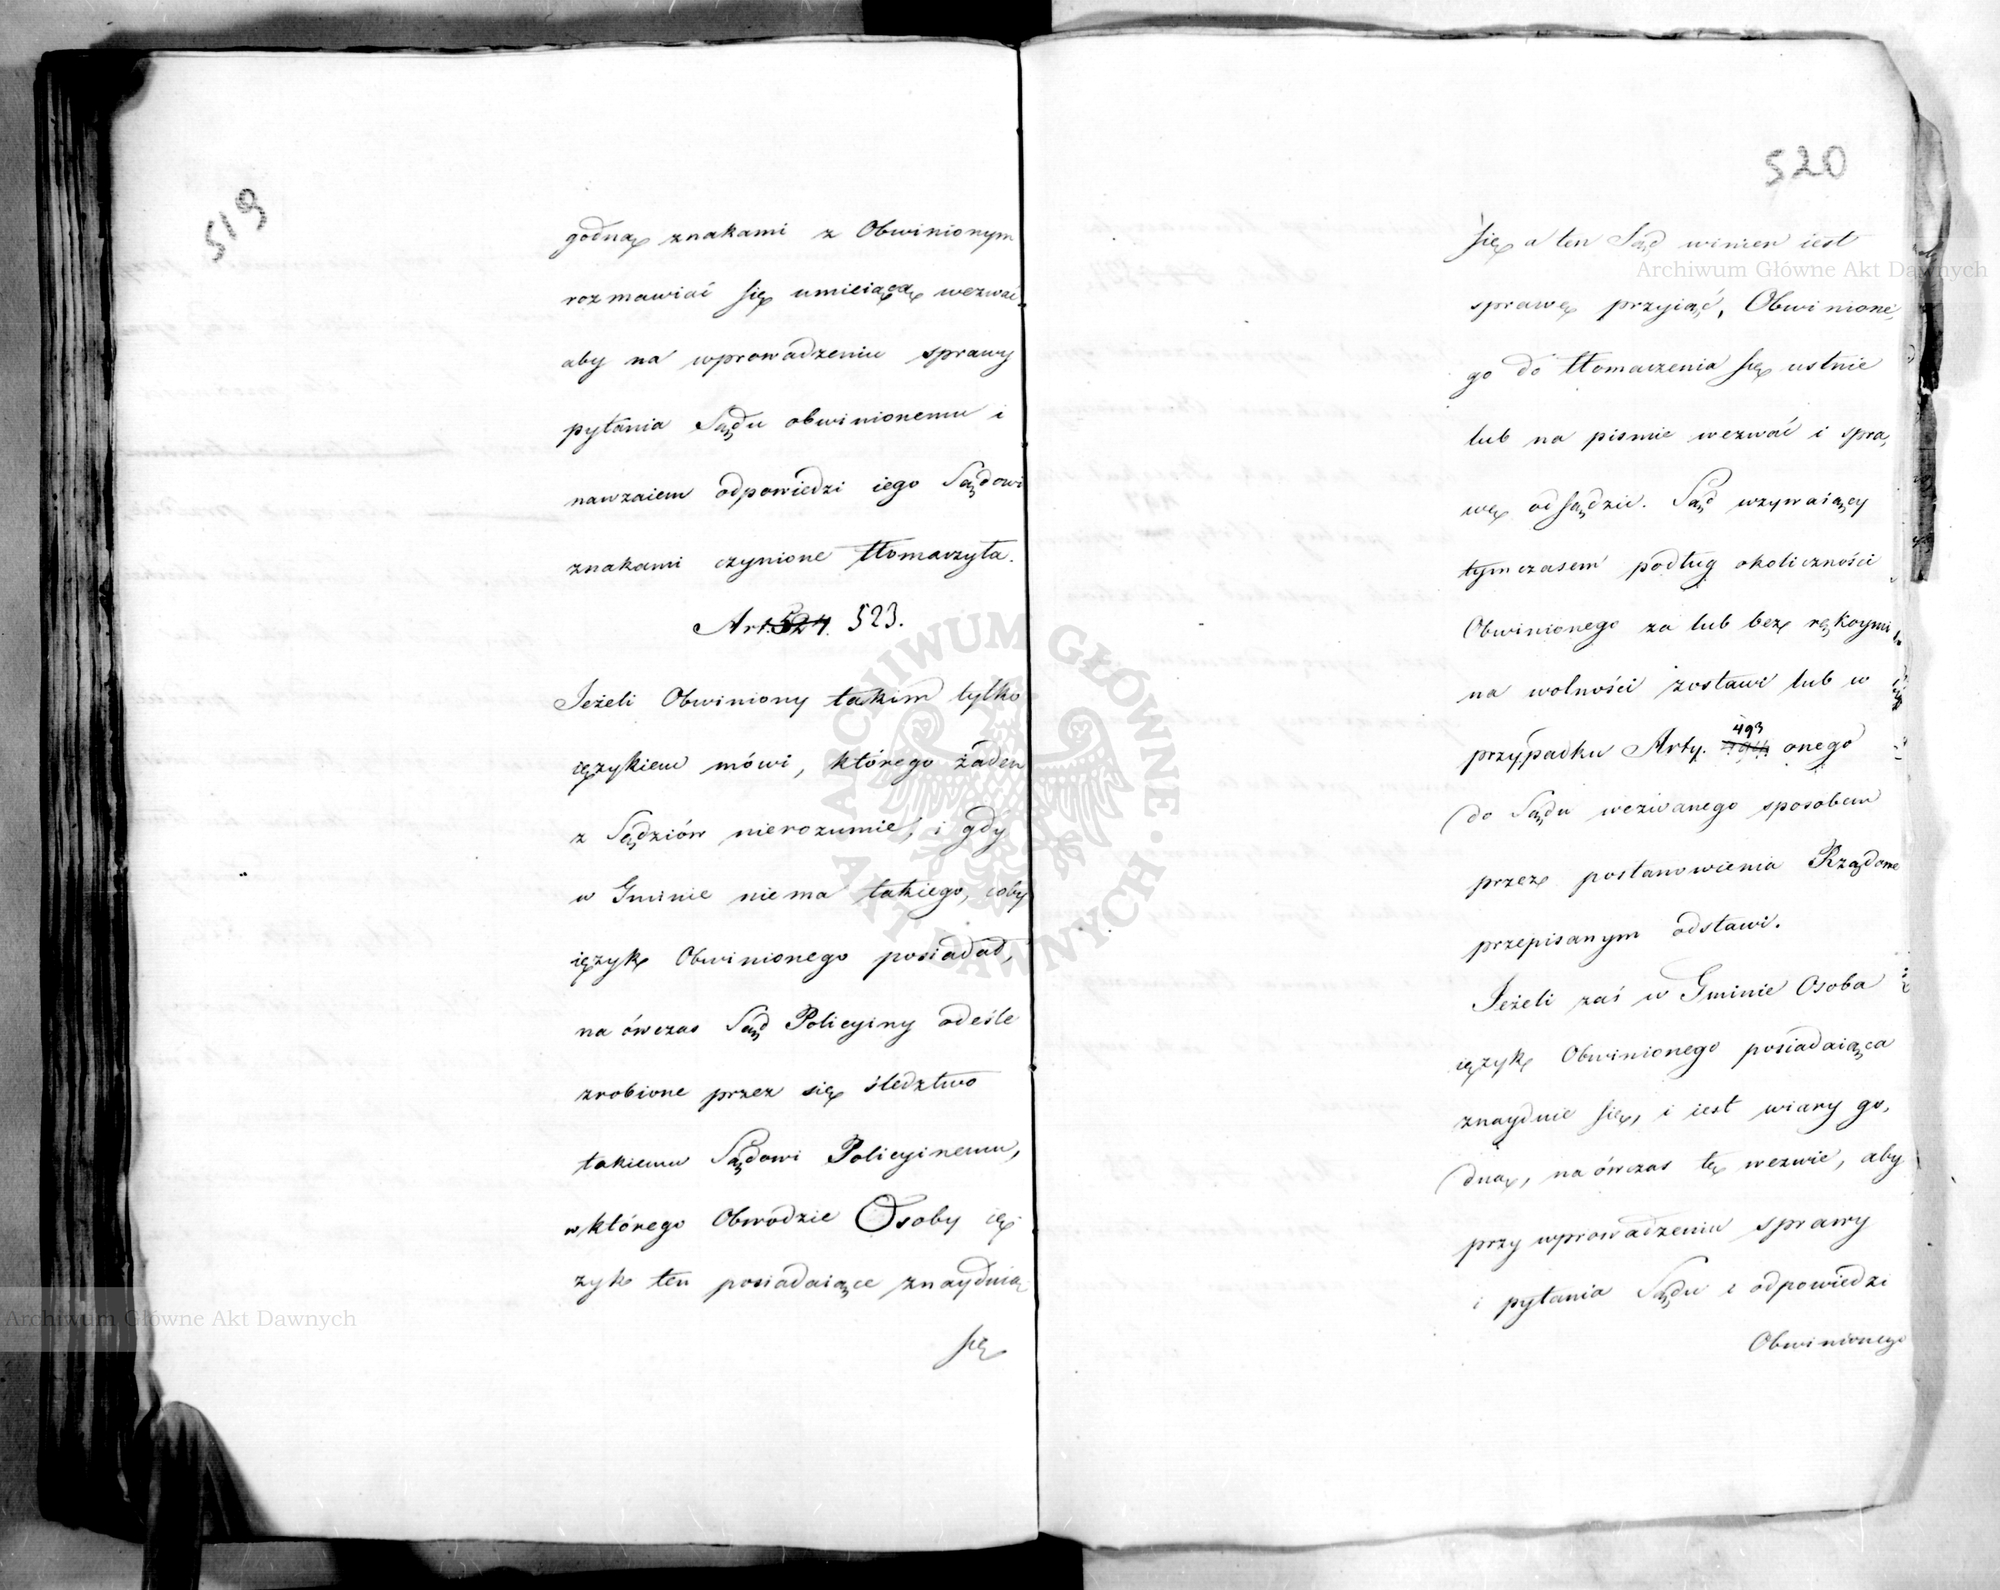 519
godną znakami z Obwinionym
rozmawiać się umieiącą wezwać
aby na wprowadzeniu sprawy
pytania Sądu obwinionemu i
nawzaiem odpowiedzi iego Sądowi
znakami czynione tłomaczyła.
Art. 524. 523.
Jeżeli Obwiniony takim tylko
ięzykiem mówi, którego żaden
z Sędziów nierozumie, i gdy
w Gminie niema takiego, coby
ięzyk Obwinionego posiadał,
na ówczas Sąd Policyiny odeśle
zrobione przez się śledztwo
takiemu Sądowi Policyinemu,
w którego Obwodzie Osoby ię-
zyk ten posiadaiące znayduią
się
520
się a ten Sąd winien iest
sprawę przyiąć, Obwinione,
go do tłomaczenia się ustnie
lub na pismie wezwać i spra,
wę odsądzić. Sąd wzywaiący
tymczasem podług okoliczności
Obwinionego za lub bez rękoymi
na wolności zostawi lub w
przypadku Arty. 493 onego
do Sądu wezwanego sposobem
przez postanowienia Rządowe
przepisanym odstawi.
Jeżeli zaś w Gminie Osoba
ięzyk Obwinionego posiadaiąca
znayduie się, i iest wiary go,
dną, na ówczas tę wezwie, aby
przy wprowadzeniu sprawy
i pytania Sądu i odpowiedzi
Obwinionego
Archiwum Główne Akt Dawnych
Archiwum Główne Akt Dawnych
ARCHIWUM GŁÓWNE AKT DAWNYCH